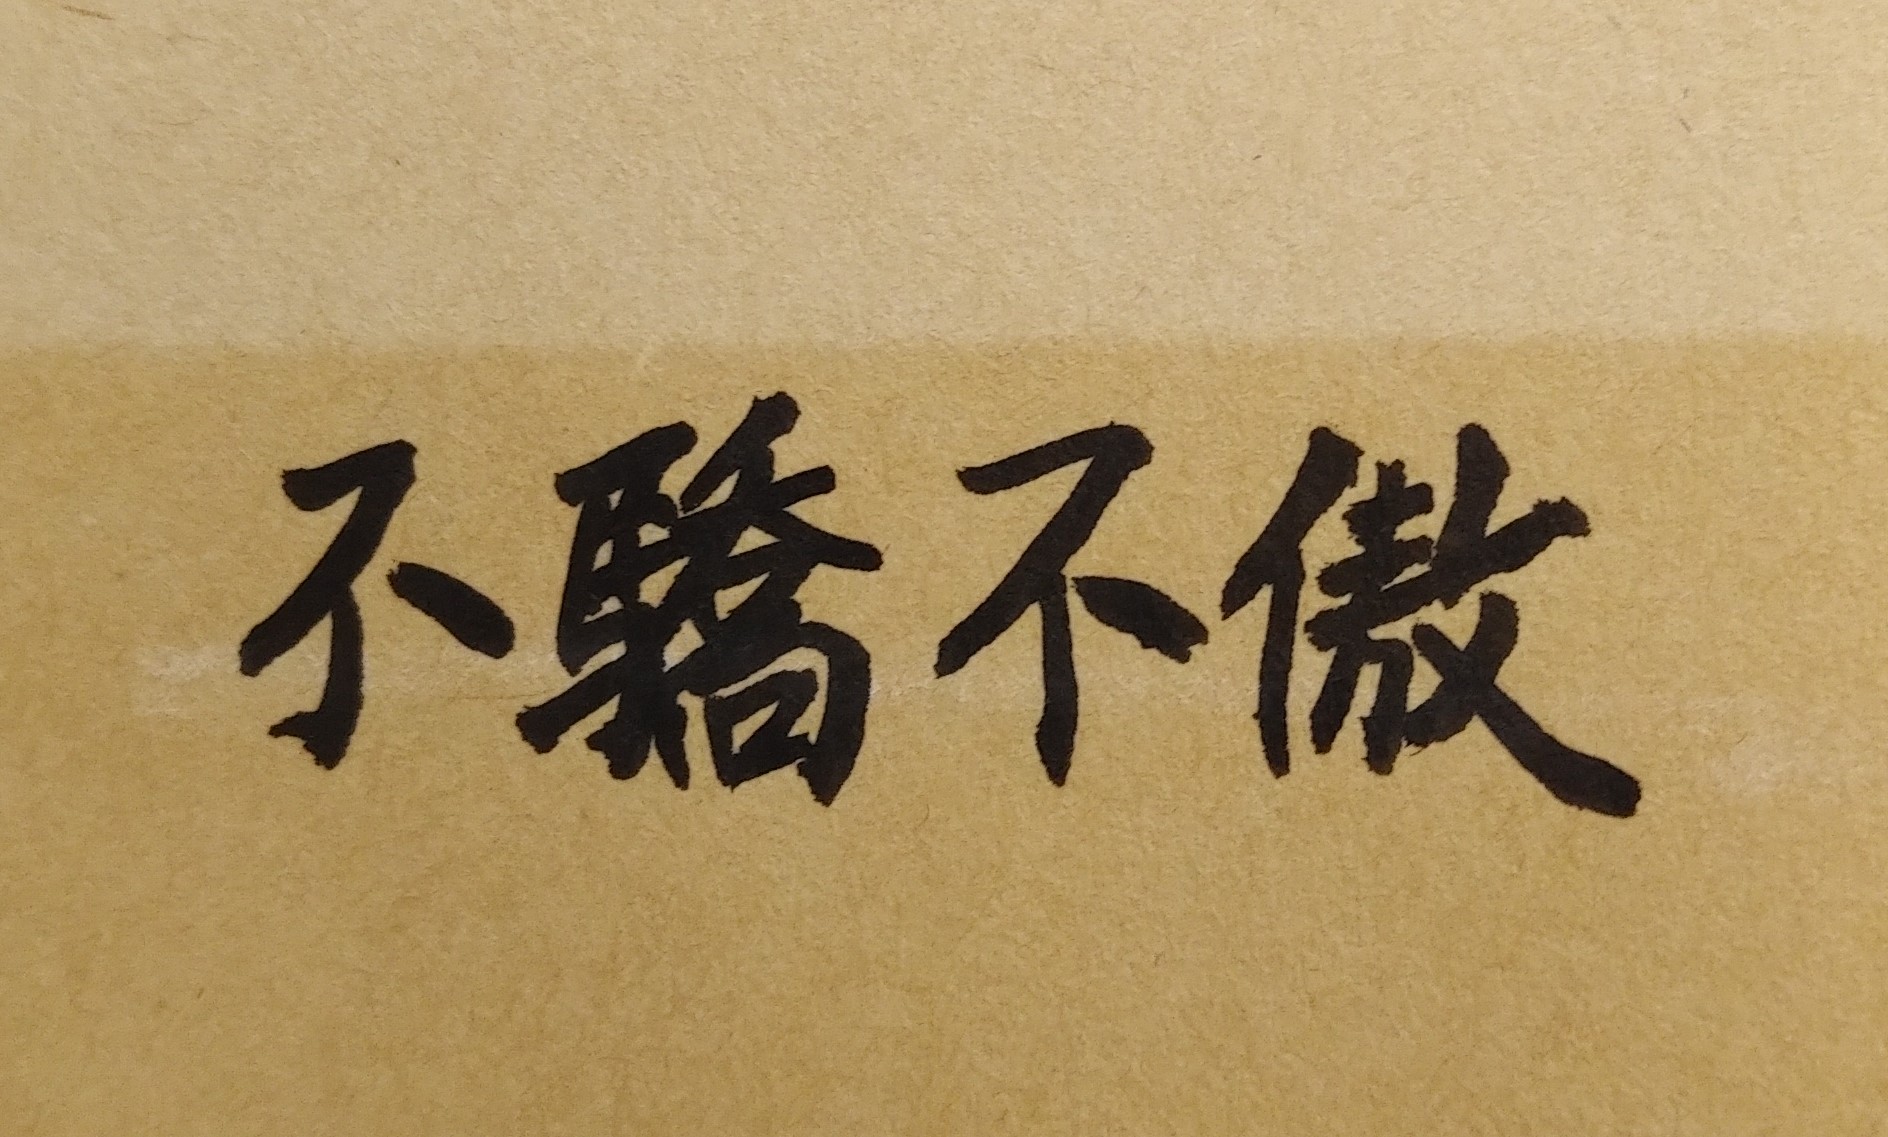 不驕不傲